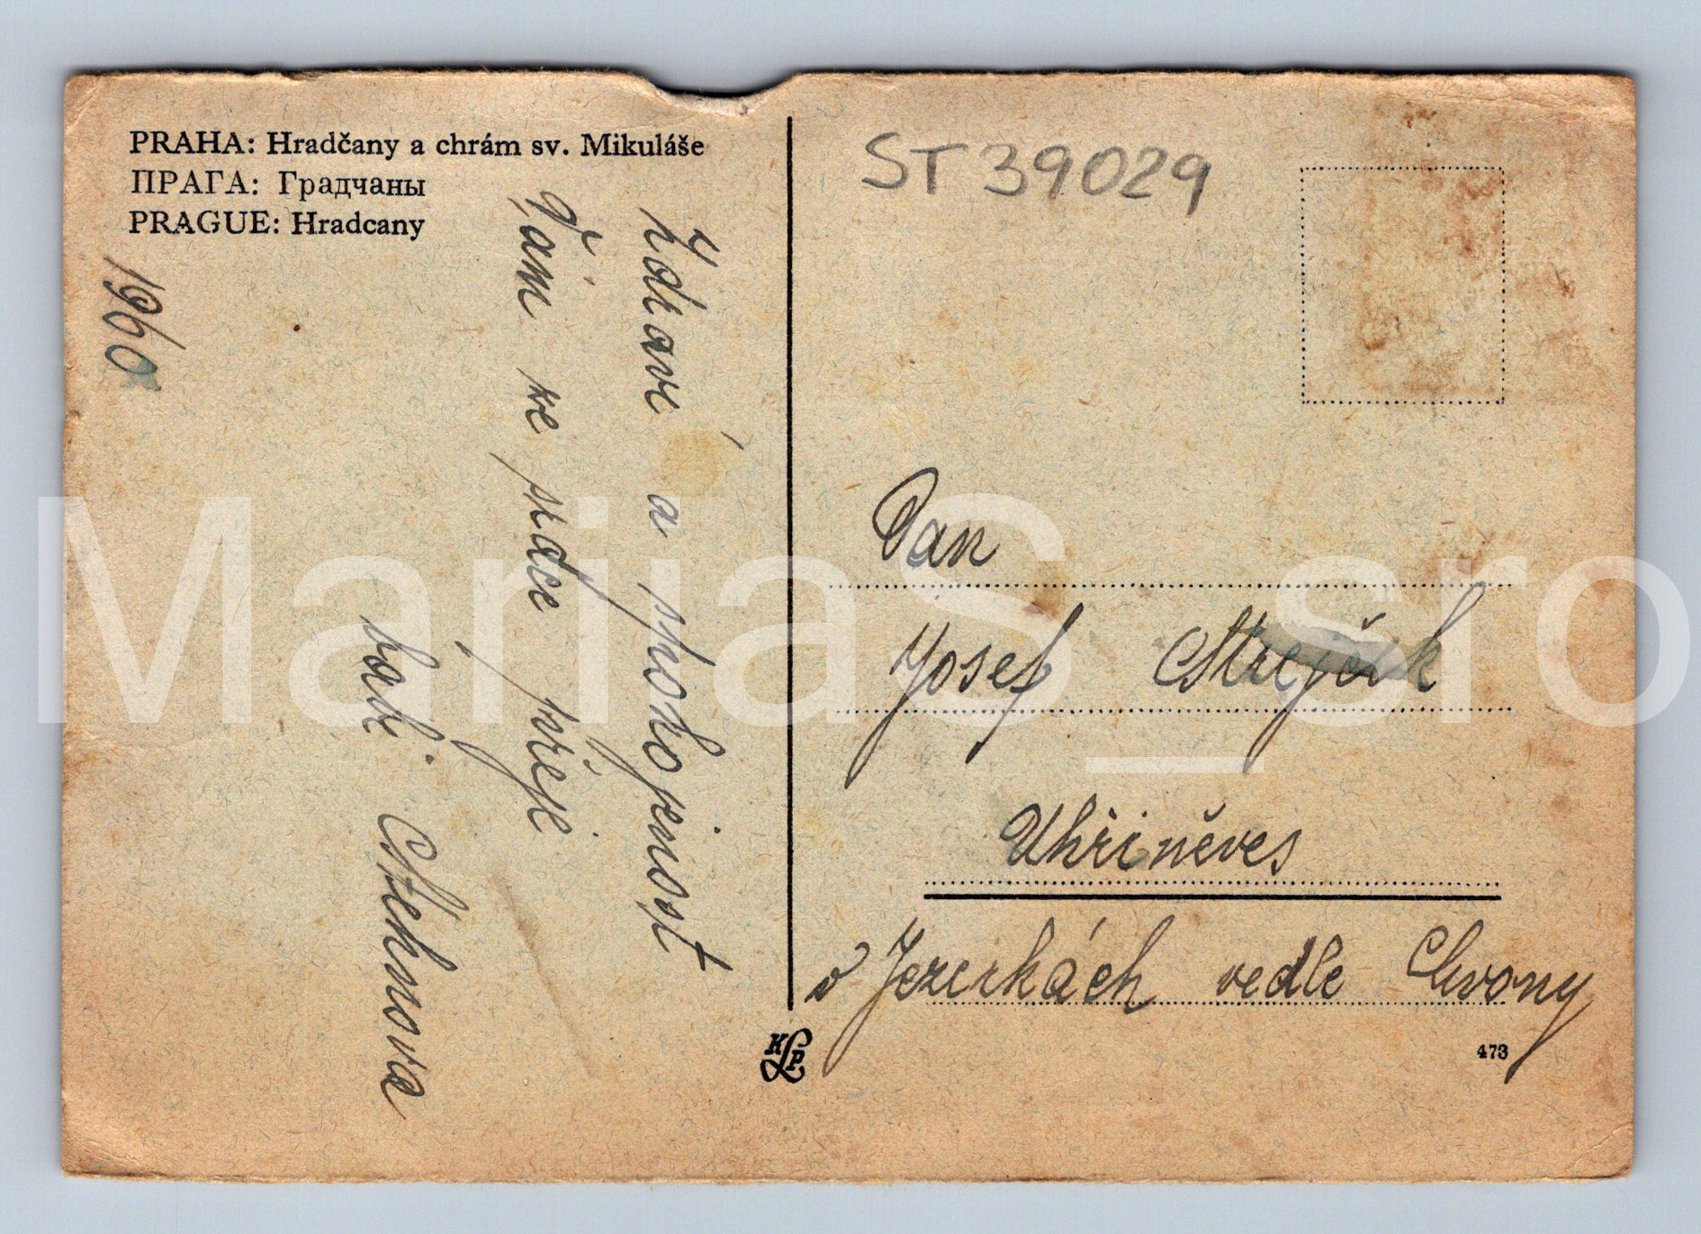 PRAHA: Hradčany a chrám sv. Mikuláše
ПРАГА: Градчаны
PRAGUE: Hradcany
1960
Zdraví a spokojenost
Vám ve srdce přeje
babi Stehnova
ST 39029
Pan
Josef Strejček
Uhříněves
v Jezerkách vedle Chvony
KLP
473
MarijaS_sro